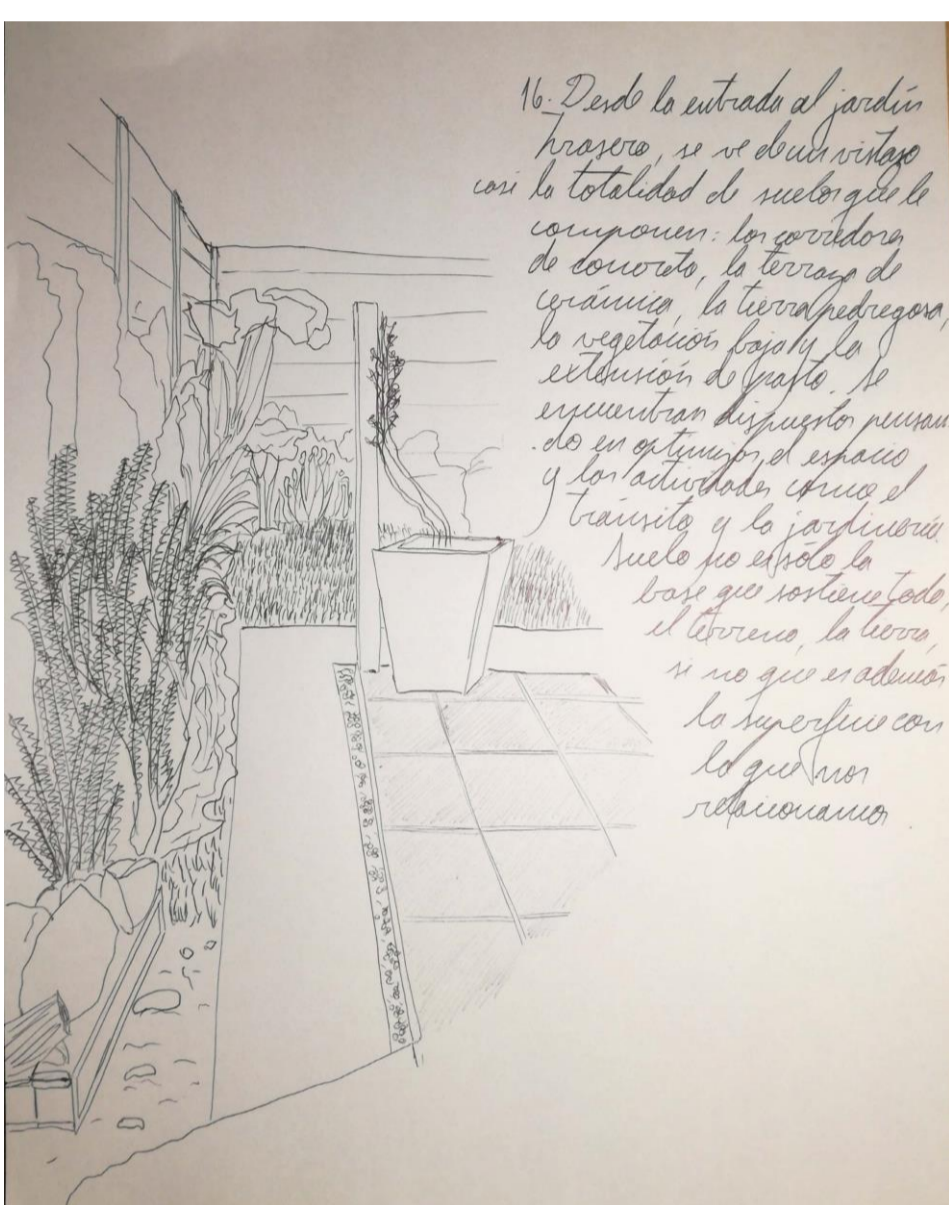 16. Desde la entrada al jardín
trasero, se ve de un vistazo
casi la totalidad de suelos que le
componen: los corredores
de concreto, la terraza de
cerámica, la tierra pedregosa,
la vegetación baja y la
extensión de pasto. Se
encuentran dispuestos pensan
do en optimizar el espacio
y las actividades como el
tránsito y la jardinería.
Suelo no es sólo la
base que sostiene todo
el terreno, la tierra,
si no que es además
la superficie con
la que nos
relacionamos